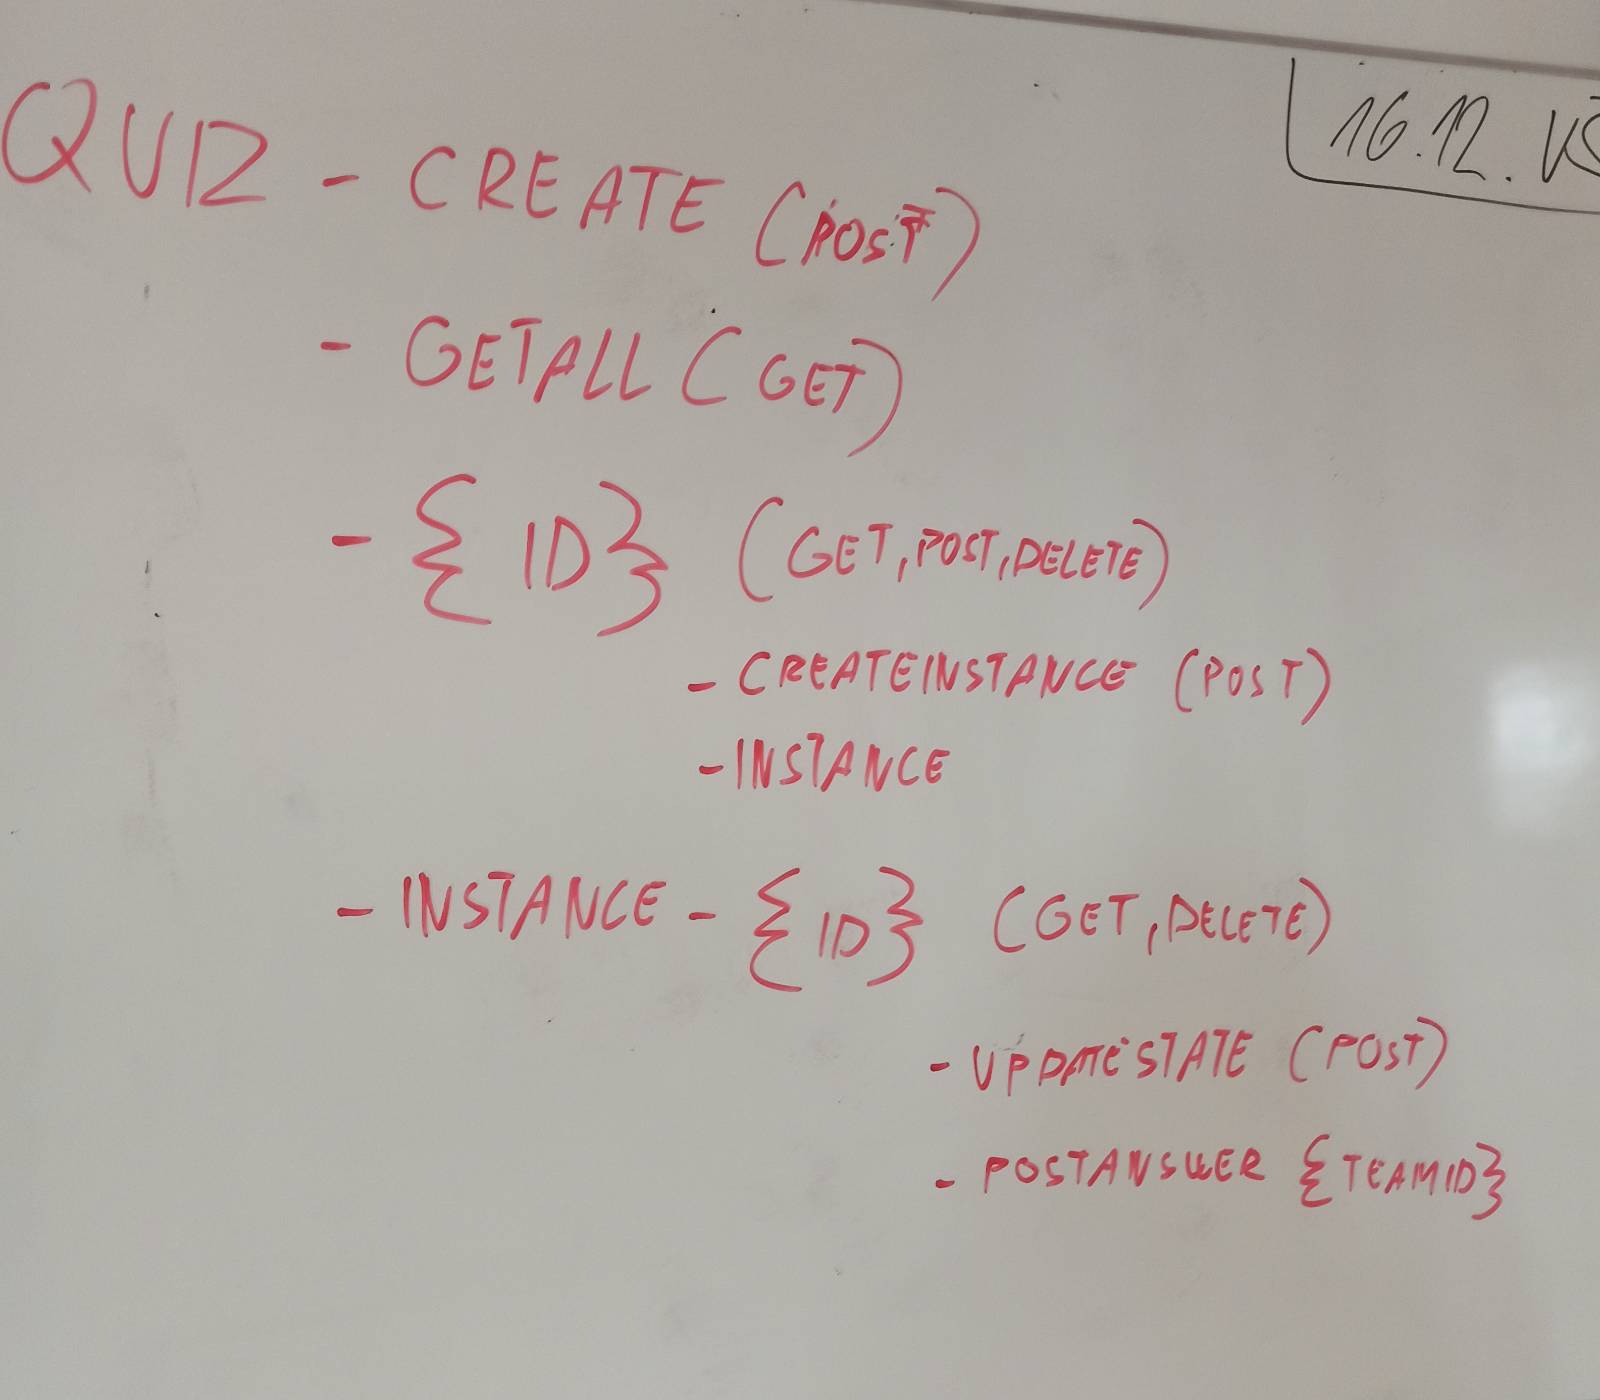 16.12.
QUIZ - CREATE (POST)
- GETALL (GET)
- {ID} (GET, POST, DELETE)
- CREATEINSTANCE (POST)
- INSTANCE
- INSTANCE - {ID} (GET, DELETE)
- UPDATESTATE (POST)
- POSTANSWER {TEAMID}